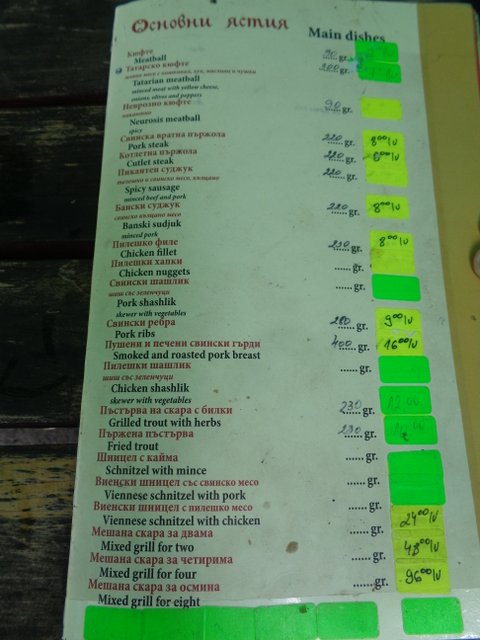 Основни ястия
Main dishes
Кюфте
90 gr.
Meatball
Татарско кюфте
200 gr.
Tatarian meatball
minced meat with yellow cheese,
onions, olives and peppers
Неврозно кюфте
90 gr.
Neurosis meatball
spicy
Свинска вратна пържола
220 gr. 8.00 lv
Pork steak
Котлетна пържола
220 gr.
Cutlet steak
Пикантен суджук
220 gr.
телешко и свинско месо, кълцано
Spicy sausage
minced beef and pork
Бански суджук
220 gr. 8.00 lv
свинско кълцано месо
Banski sudjuk
minced pork
Пилешко филе
230 gr. 8.00 lv
Chicken fillet
Пилешки хапки
...... gr.
Chicken nuggets
Свински шашлик
...... gr.
шиш със зеленчуци
Pork shashlik
skewer with vegetables
Свински ребра
gr. 9.00 lv
Pork ribs
Пушени и печени свински гърди
400 gr. 16.00 lv
Smoked and roasted pork breast
Пилешки шашлик
...... gr.
шиш със зеленчуци
Chicken shashlik
skewer with vegetables
Пъстърва на скара с билки
230 gr.
Grilled trout with herbs
Пържена пъстърва
230 gr.
Fried trout
Шницел с кайма
...... gr.
Schnitzel with mince
Виенски шницел със свинско месо
...... gr.
Viennese schnitzel with pork
Виенски шницел с пилешко месо
...... gr.
Viennese schnitzel with chicken
24.00 lv
Мешана скара за двама
...... gr.
Mixed grill for two
48.00 lv
Мешана скара за четирима
...... gr.
Mixed grill for four
96.00 lv
Мешана скара за осмина
...... gr.
Mixed grill for eight